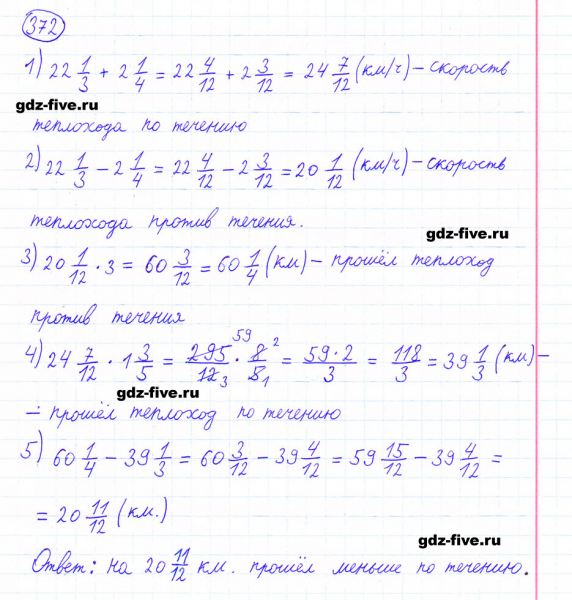 372
1) 22 1/3 + 2 1/4 = 22 4/12 + 2 3/12 = 24 7/12 (км/ч) – скорость
gdz-five.ru
теплохода по течению
2) 22 1/3 – 2 1/4 = 22 4/12 – 2 3/12 = 20 1/12 (км/ч) – скорость
теплохода против течения.
gdz-five.ru
3) 20 1/12 · 3 = 60 3/12 = 60 1/4 (км) – прошёл теплоход
против течения
4) 24 7/12 · 1 3/5 = 295 59/12 3 · 8 2/5 1 = 59·2/3 = 118/3 = 39 1/3 (км) –
gdz-five.ru
– прошёл теплоход по течению
5) 60 1/4 – 39 1/3 = 60 3/12 – 39 4/12 = 59 15/12 – 39 4/12 =
= 20 11/12 (км.)
gdz-five.ru
Ответ: на 20 11/12 км. прошёл меньше по течению.